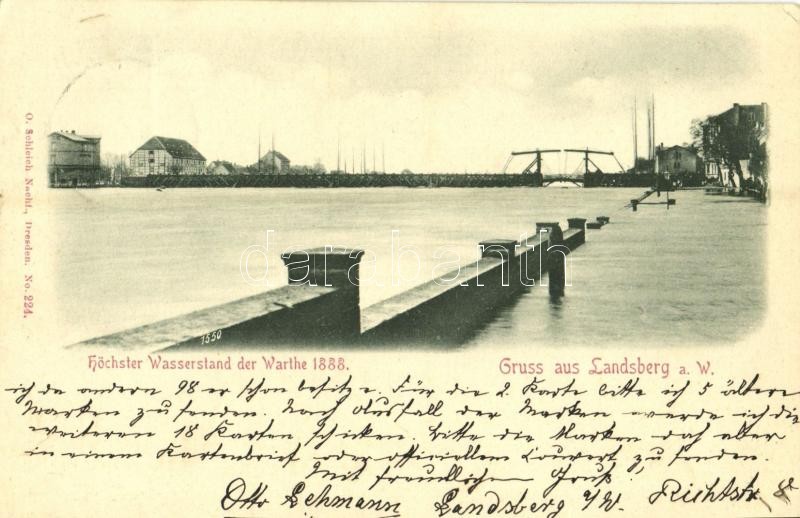 O. Schleich Nachf., Dresden. No. 224.
darabanth
1550
Höchster Wasserstand der Warthe 1888.
Gruss aus Landsberg a. W.
ich da andern 98 er schon besitze. Für die 2. Karte bitte ich 5 ältere
Marken zu senden. Nach Ausfall der Marken werde ich die
weiteren 18 Karten schicken. Bitte die Marken doch aber
in einem Kartenbrief oder officiellem Couvert zu senden.
Mit freundlichem Gruß
Otto Lehmann Landsberg a/W. Richtstr.